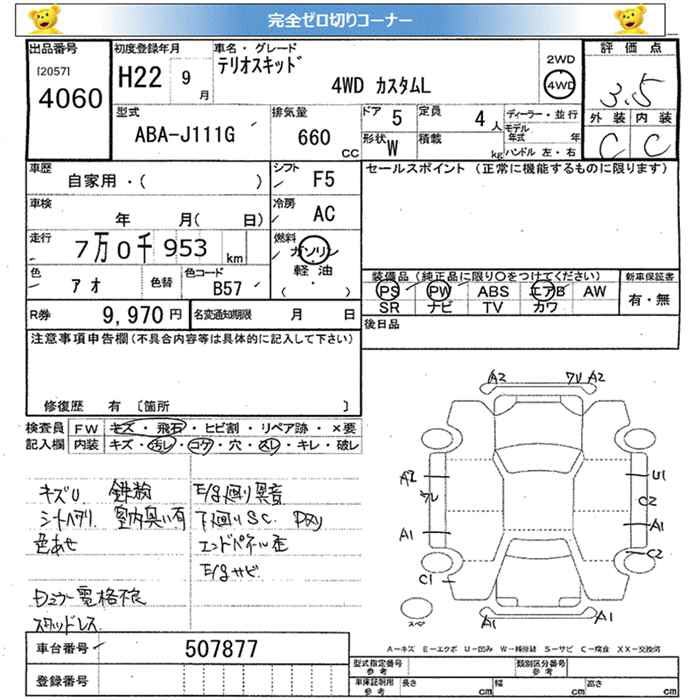 完全ゼロ切りコーナー
出品番号
[2057]
4060
初度登録年月
H22 9月
車名・グレード
テリオスキッド
4WD カスタムL
2WD
4WD
評価点
3.5
外装 内装
C C
型式
ABA-J111G
排気量
660 CC
ドア 5
定員 4人
形状 W
積載 kg
ディーラー・並行
モデル年式 年
ハンドル 左・右
車歴
自家用・( )
シフト F5
セールスポイント (正常に機能するものに限ります)
車検
年 月( 日)
冷房 AC
走行
7万0千953km
燃料
ガソリン
軽油
( ・ )
色 アオ
色替
色コード B57
装備品(純正品に限り○をつけてください)
PS PW ABS エアB AW
SR ナビ TV カワ
新車保証書
有・無
R券 9,970円
名変通知期限 月 日
後日品
注意事項申告欄(不具合内容等は具体的に記入して下さい)
修復歴 有 〔箇所 〕
検査員記入欄
FW キズ・飛石・ヒビ割・リペア跡・×要
内装 キズ・汚レ・コゲ・穴・スレ・キレ・破レ
キズU 鉄粉
シートヘタリ 室内臭い有
色あせ
スタッドレス
E/g廻り異音
下廻りSC
E/gサビ
A2 ワレ A2
A2 ワレ
U1
C2
A1
A1
C2
C1
A1 A1
スペア
A－キズ E－エクボ U－凹み W－補修跡 S－サビ C－腐食 XX－交換済
車台番号 507877
登録番号
型式指定番号 参考
類別区分番号 参考
車庫証明用 参考
長さ cm 幅 cm 高さ cm